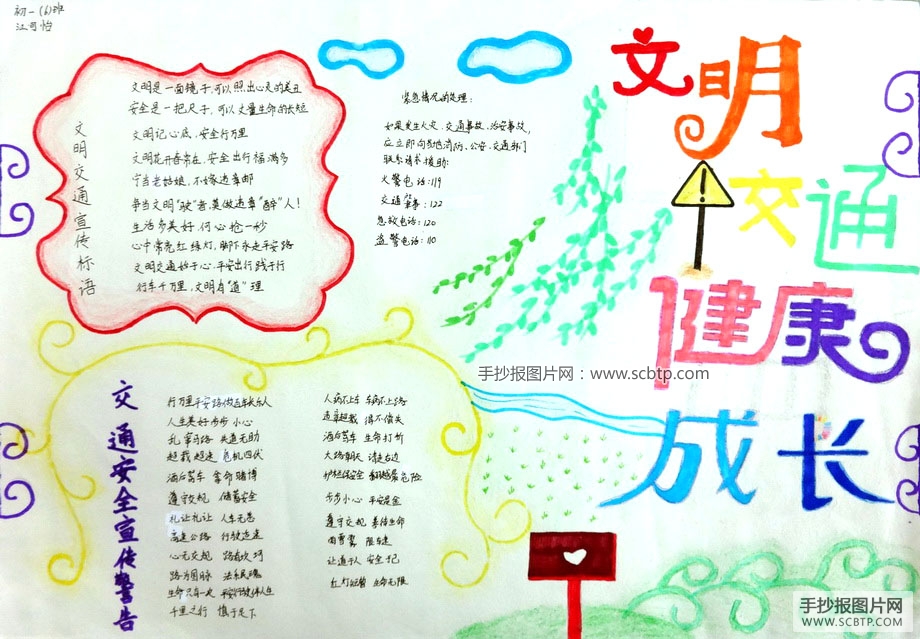 初一(6)班
江可怡
文明交通健康成长
文明交通宣传标语
文明是一面镜子,可以照出心灵的美丑
安全是一把尺子,可以丈量生命的长短
文明记心底,安全行万里
文明花开香常在,安全出行福满多
宁当老姑娘,不嫁违章郎
争当文明"驶"者,莫做违章"醉"人!
生活多美好,何心抢一秒
心中常亮红绿灯,脚下永走平安路
文明交通始于心,平安出行践于行
行车千万里,文明有"道"理
紧急情况的处理:
如果发生火灾、交通事故、治安事故,
应立即向当地消防、公安、交通部门
联系请求援助:
火警电话:119
交通肇事:122
急救电话:120
盗警电话:110
手抄报图片网:www.scbtp.com
交通安全宣传警告
行万里平安路做百年长乐人
人生美好步步小心
乱穿马路
超载超速 危机四伏
酒后驾车 拿命赌博
遵守交规 储蓄安全
礼让礼让 人车无恙
高速公路 行驶
心无交规
千里之行 慎于足下
人病不上车 车病不上路
违章超载 得不偿失
酒后驾车 生命打折
大路朝天 请走右边
步步小心 平安是金
遵守交规 善待生命
雨雪雾 限车速
让道于人 安全于己
手抄报图片网
WWW.SCBTP.COM